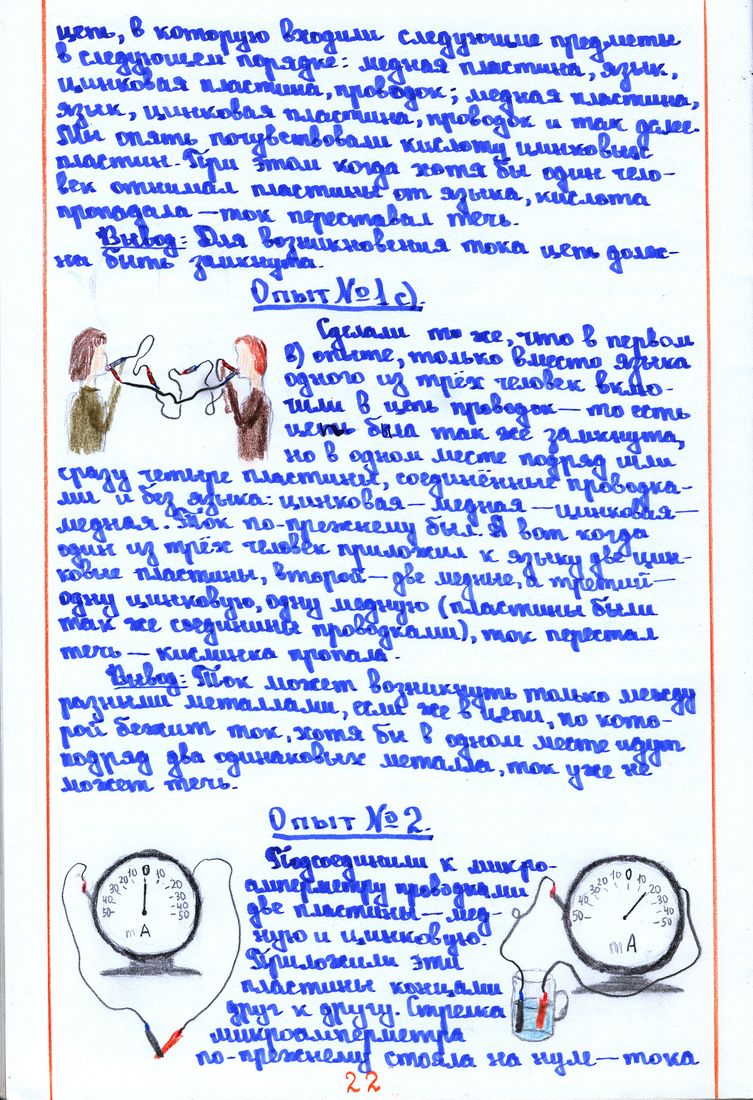 цепь, в которую входили следующие предметы
в следующем порядке: медная пластина, язык,
цинковая пластина, проводок; медная пластина,
язык, цинковая пластина, проводок и так далее.
Мы опять почувствовали кислоту цинковых
пластин. При этом когда хотя бы один чело-
век отнимал пластины от языка, кислота
пропадала — ток переставал течь.
Вывод: Для возникновения тока цепь долж-
на быть замкнута.
Опыт №1 с).
Сделали то же, что в первом
в) опыте, только вместо языка
одного из трёх человек вклю-
чили в цепь проводок — то есть
цепь была так же замкнута,
но в одном месте подряд шли
сразу четыре пластины, соединённые проводка-
ми и без языка: цинковая — медная — цинковая —
медная. Ток по-прежнему был. А вот когда
один из трёх человек приложил к языку две цин-
ковые пластины, второй — две медные, а третий —
одну цинковую, одну медную (пластины были
так же соединины проводками), ток перестал
течь — кислинка пропала.
Вывод: Ток может возникнуть только между
разными металлами, если же в цепи, по кото-
рой бежит ток, хотя бы в одном месте идут
подряд два одинаковых металла, ток уже не
может течь.
Опыт №2.
Подсоединили к микро-
амперметру проводками
две пластины — мед-
ную и цинковую.
Приложили эти
пластины концами
друг к другу. Стрелка
микроамперметра
по-прежнему стояла на нуле — тока
50 40 30 20 10 0 10 20 30 40 50
m A
50 40 30 20 10 0 10 20 30 40 50
m A
22